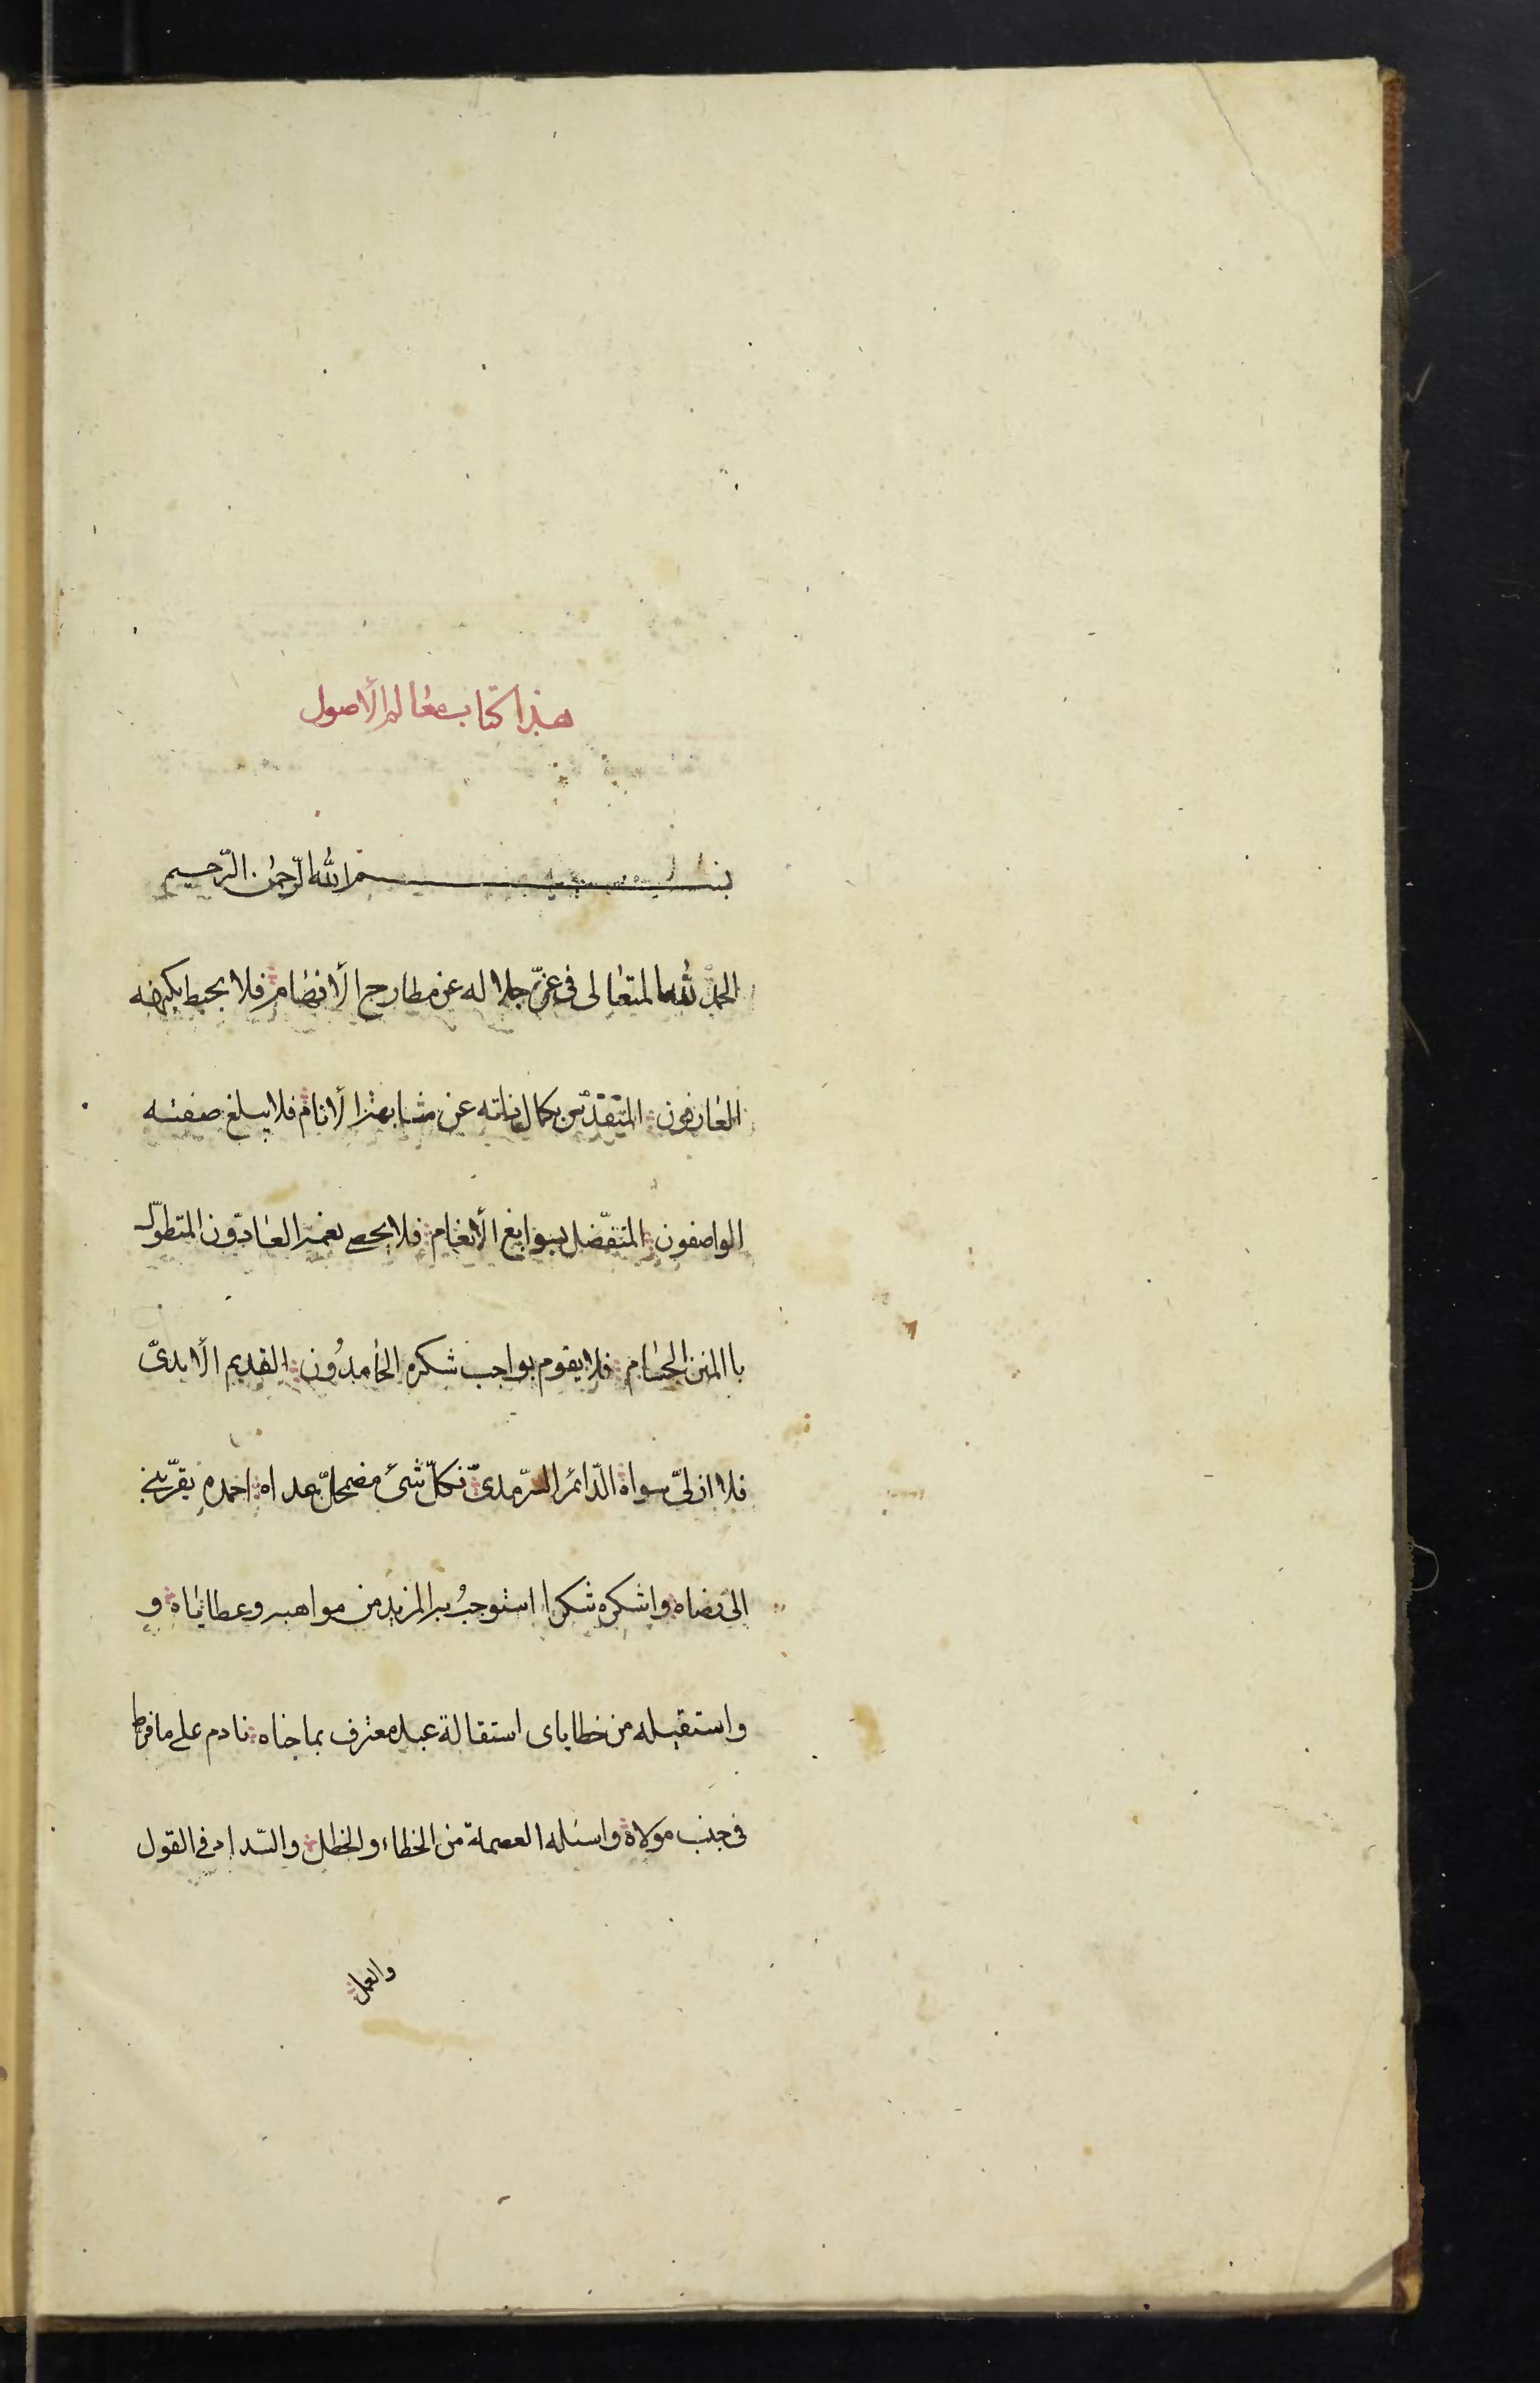 هذا كتاب معالم الأصول
بسم الله الرّحمن الرّحيم
الحمد لله المتعالى فى عزّ جلاله عن مطارح الأفهام فلا يحيط بكنهه
العارفون المتقدّس بكمال ذاته عن مشابهة الأنام فلا يبلغ صفته
الواصفون المتفضّل بسوابغ الأنعام فلا يحصى نعمه العادّون المتطوّل
باالمنن الجسام فلا يقوم بواجب شكره الحامدُون القديم الأبدىّ
فلا ازلىّ سواه الدّائم السّرمدىّ فكلّ شئ مضمحلّ عداه احمده يقرّبنى
الى رضاه واشكره شكرا استوجبُ به المزيد من مواهبه وعطاياه و
واستقيله من خطاياى استقالة عبد معترف بما جناه نادم على ما فرط
فى جنب مولاه واسئله العصمة من الخطاء والخطل والسّداد فى القول
والعمل